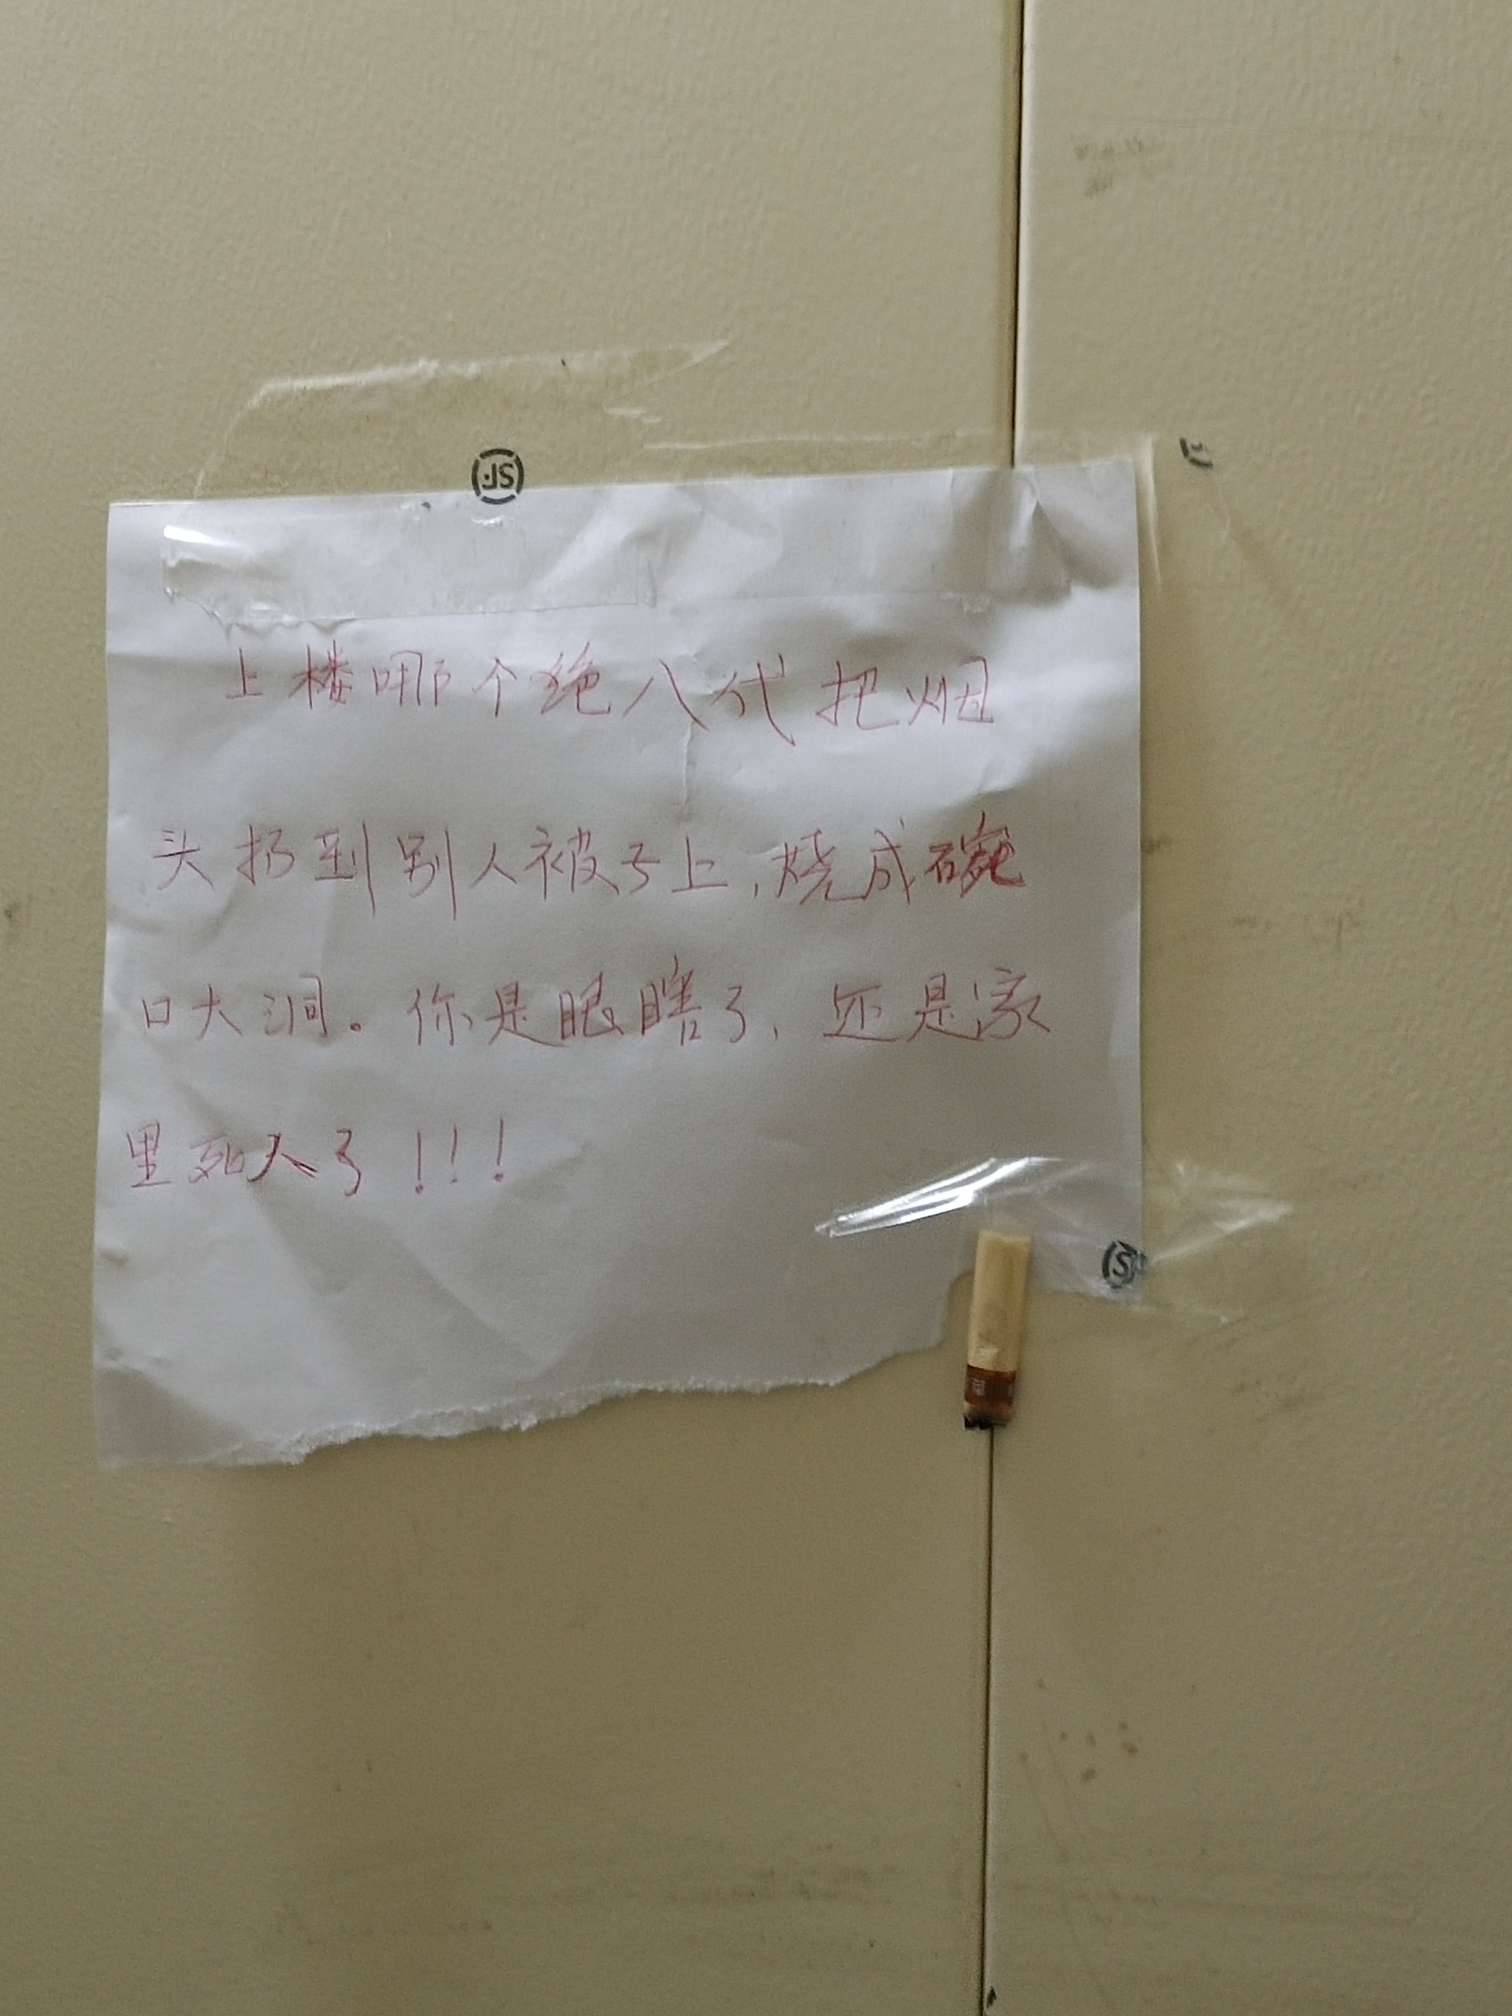 上楼哪个绝八代把烟
头扔到别人被子上,烧成碗
口大洞。你是眼瞎了,还是家
里死人了!!!